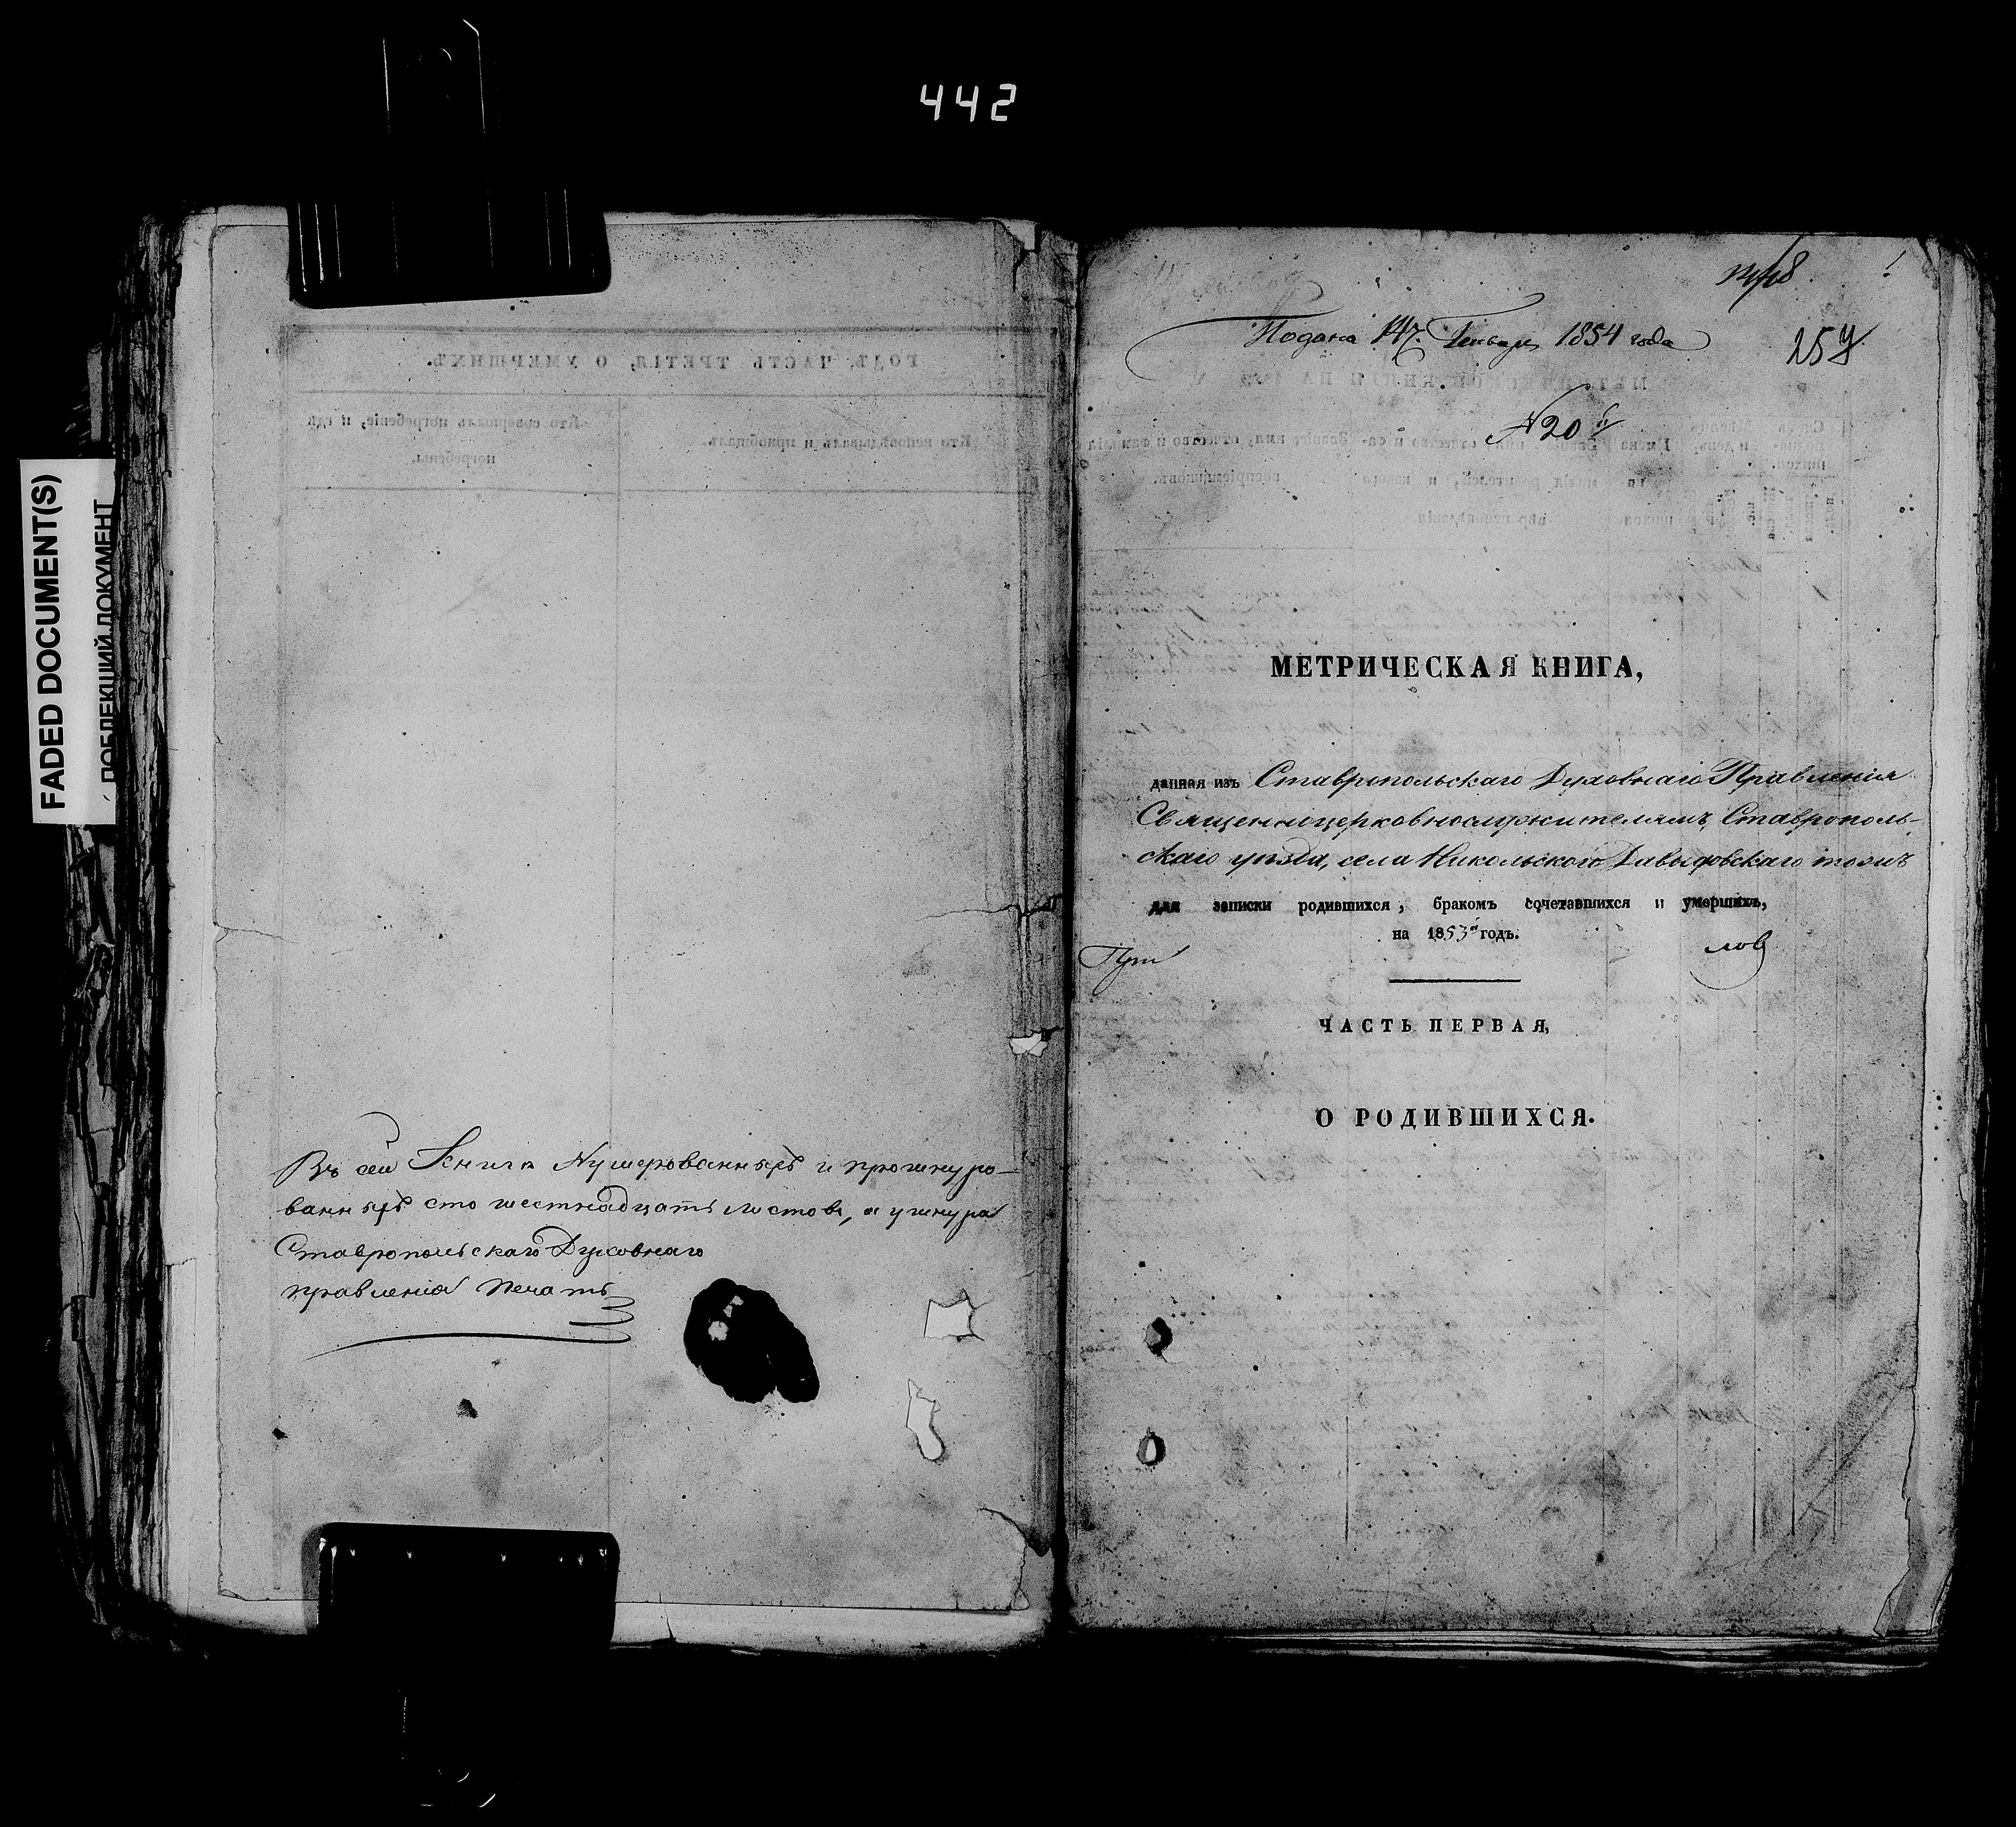 442
FADED DOCUMENT(S)
ПОБЛЕКШИЙ ДОКУМЕНТ
Въ сей Книгѣ Нумерованныхъ и прошнуро-
ванныхъ сто шестнадцать листовъ, а у шнура
Ставропольскаго Духовнаго
правленія печать
Подана Генваря 1854 года
257
№ 20й
МЕТРИЧЕСКАЯ КНИГА,
данная изъ Ставропольскаго Духовнаго Правленія
Священноцерковнослужителямъ, Ставрополь-
скаго уѣзда, села Никольскаго Давыдовскаго тожъ
для записки родившихся, бракомъ сочетавшихся и умершихъ,
на 1853й годъ.
лов
ЧАСТЬ ПЕРВАЯ,
О РОДИВШИХСЯ.